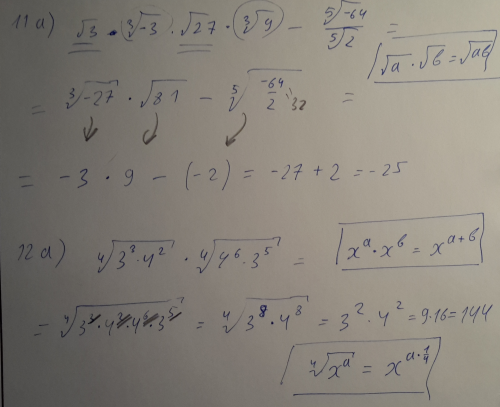 11 a) √3 · ∛-3 · √27 · ∛9 - ⁵√-64 / ⁵√2 =
√a · √b = √ab
= ∛-27 · √81 - ⁵√(-64/2) 32 =
= -3 · 9 - (-2) = -27 + 2 = -25
12 a) ⁴√3³·4² · ⁴√4⁶·3⁵ =
xᵃ · xᵇ = xᵃ⁺ᵇ
= ⁴√3³·4²·4⁶·3⁵ = ⁴√3⁸·4⁸ = 3²·4² = 9·16 = 144
⁴√xᵃ = x^(a·1/4)